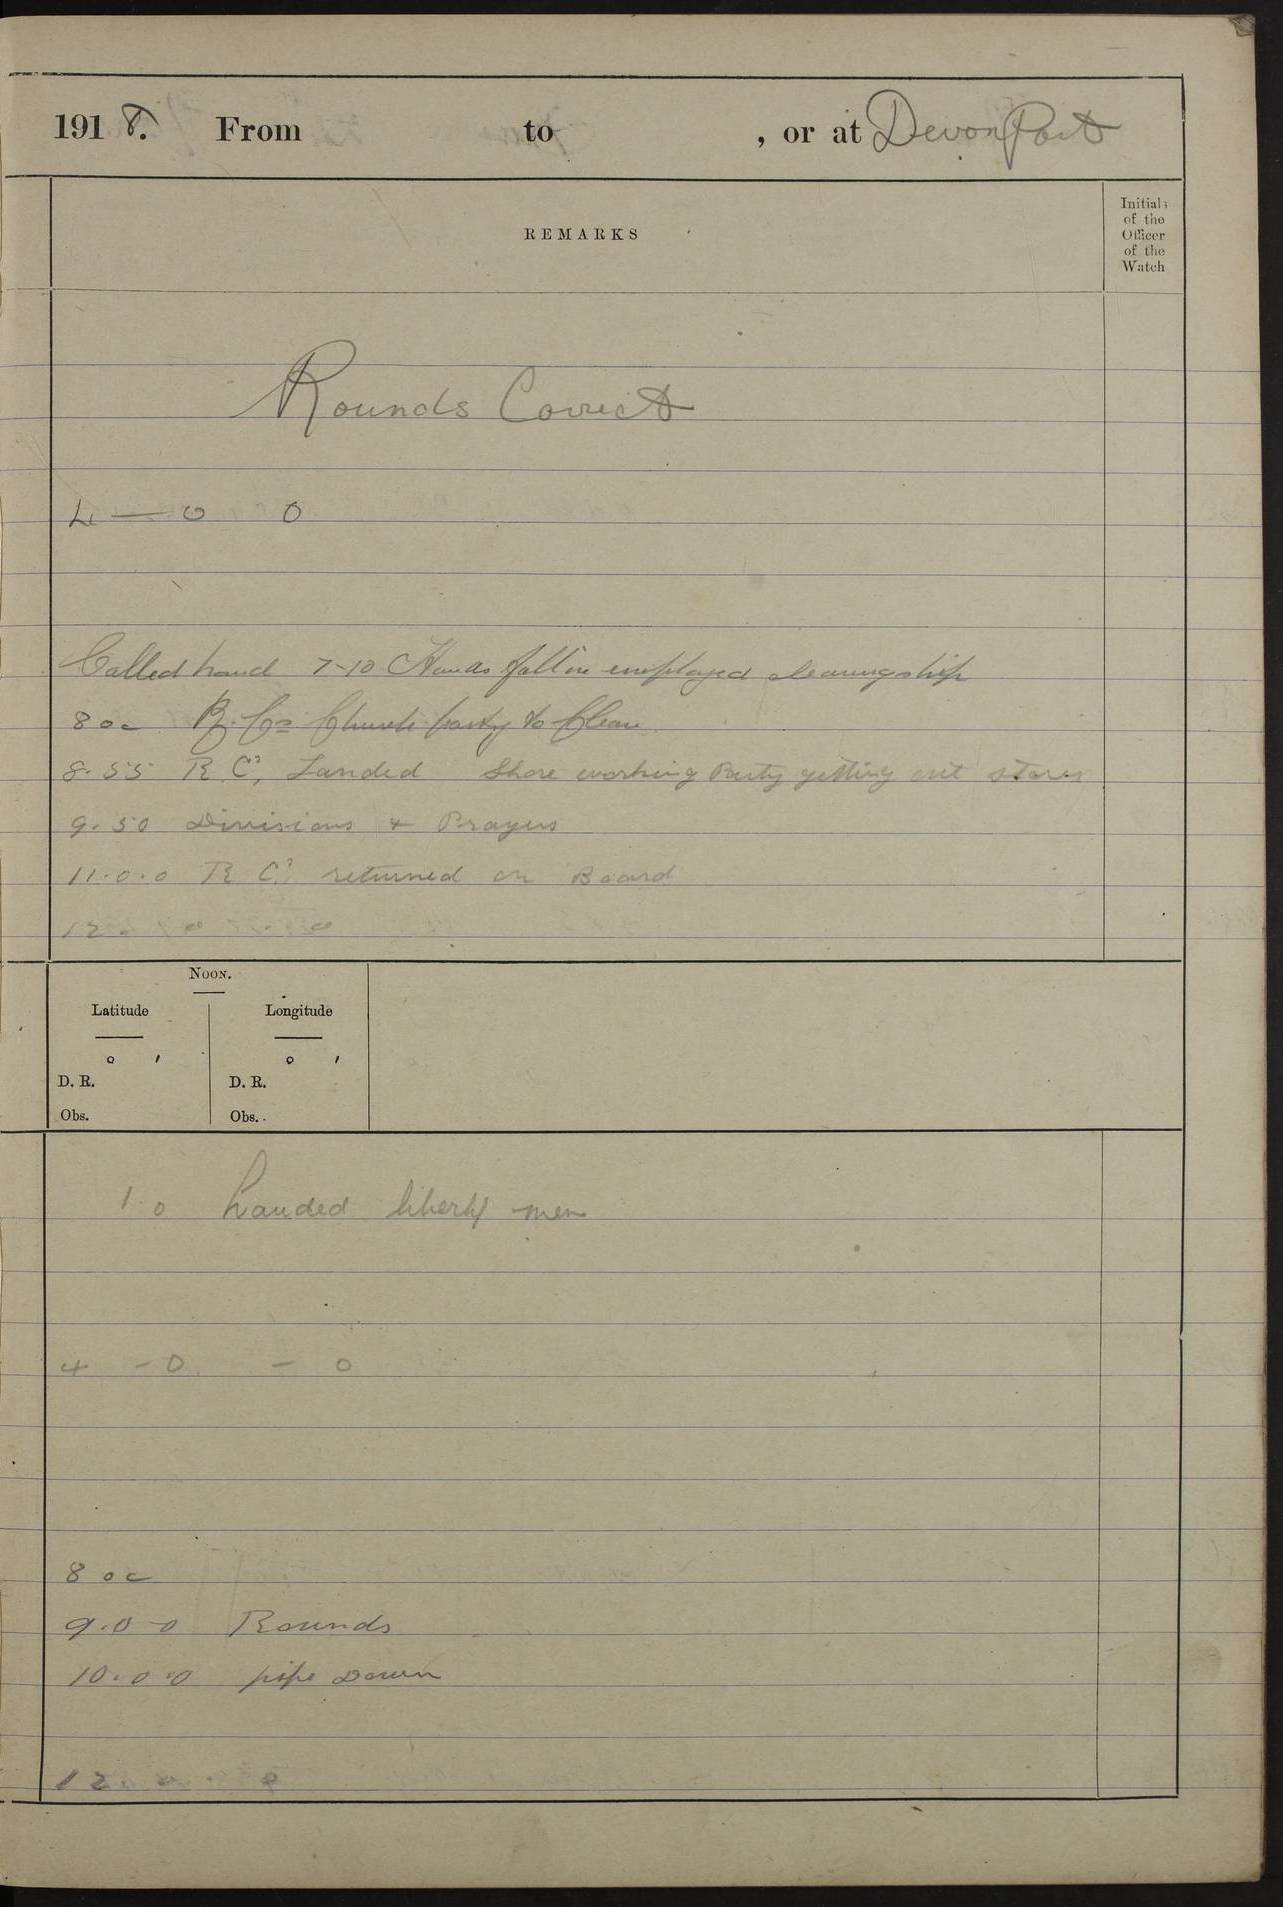 1918. From to , or at DevonPort
REMARKS
Initials
of the
Officer
of the
Watch
Rounds Correct
4 — 0 0
Called hand 7-10 Hands fall in employed cleaning ship
8 oc R. Cs Church party to Clean
8.55 R C's, Landed Shore working Party getting out stores
9.50 Divisions + Prayers
11.0.0 R C's returned on Board
12
Noon.
Latitude Longitude
° ′ ° ′
D. R. D. R.
Obs. Obs.
1 0 Landed liberty men
4 - 0 - 0
8 oc
9.0-0 Rounds
10.0.0 pipe Down
12. 0 . 0